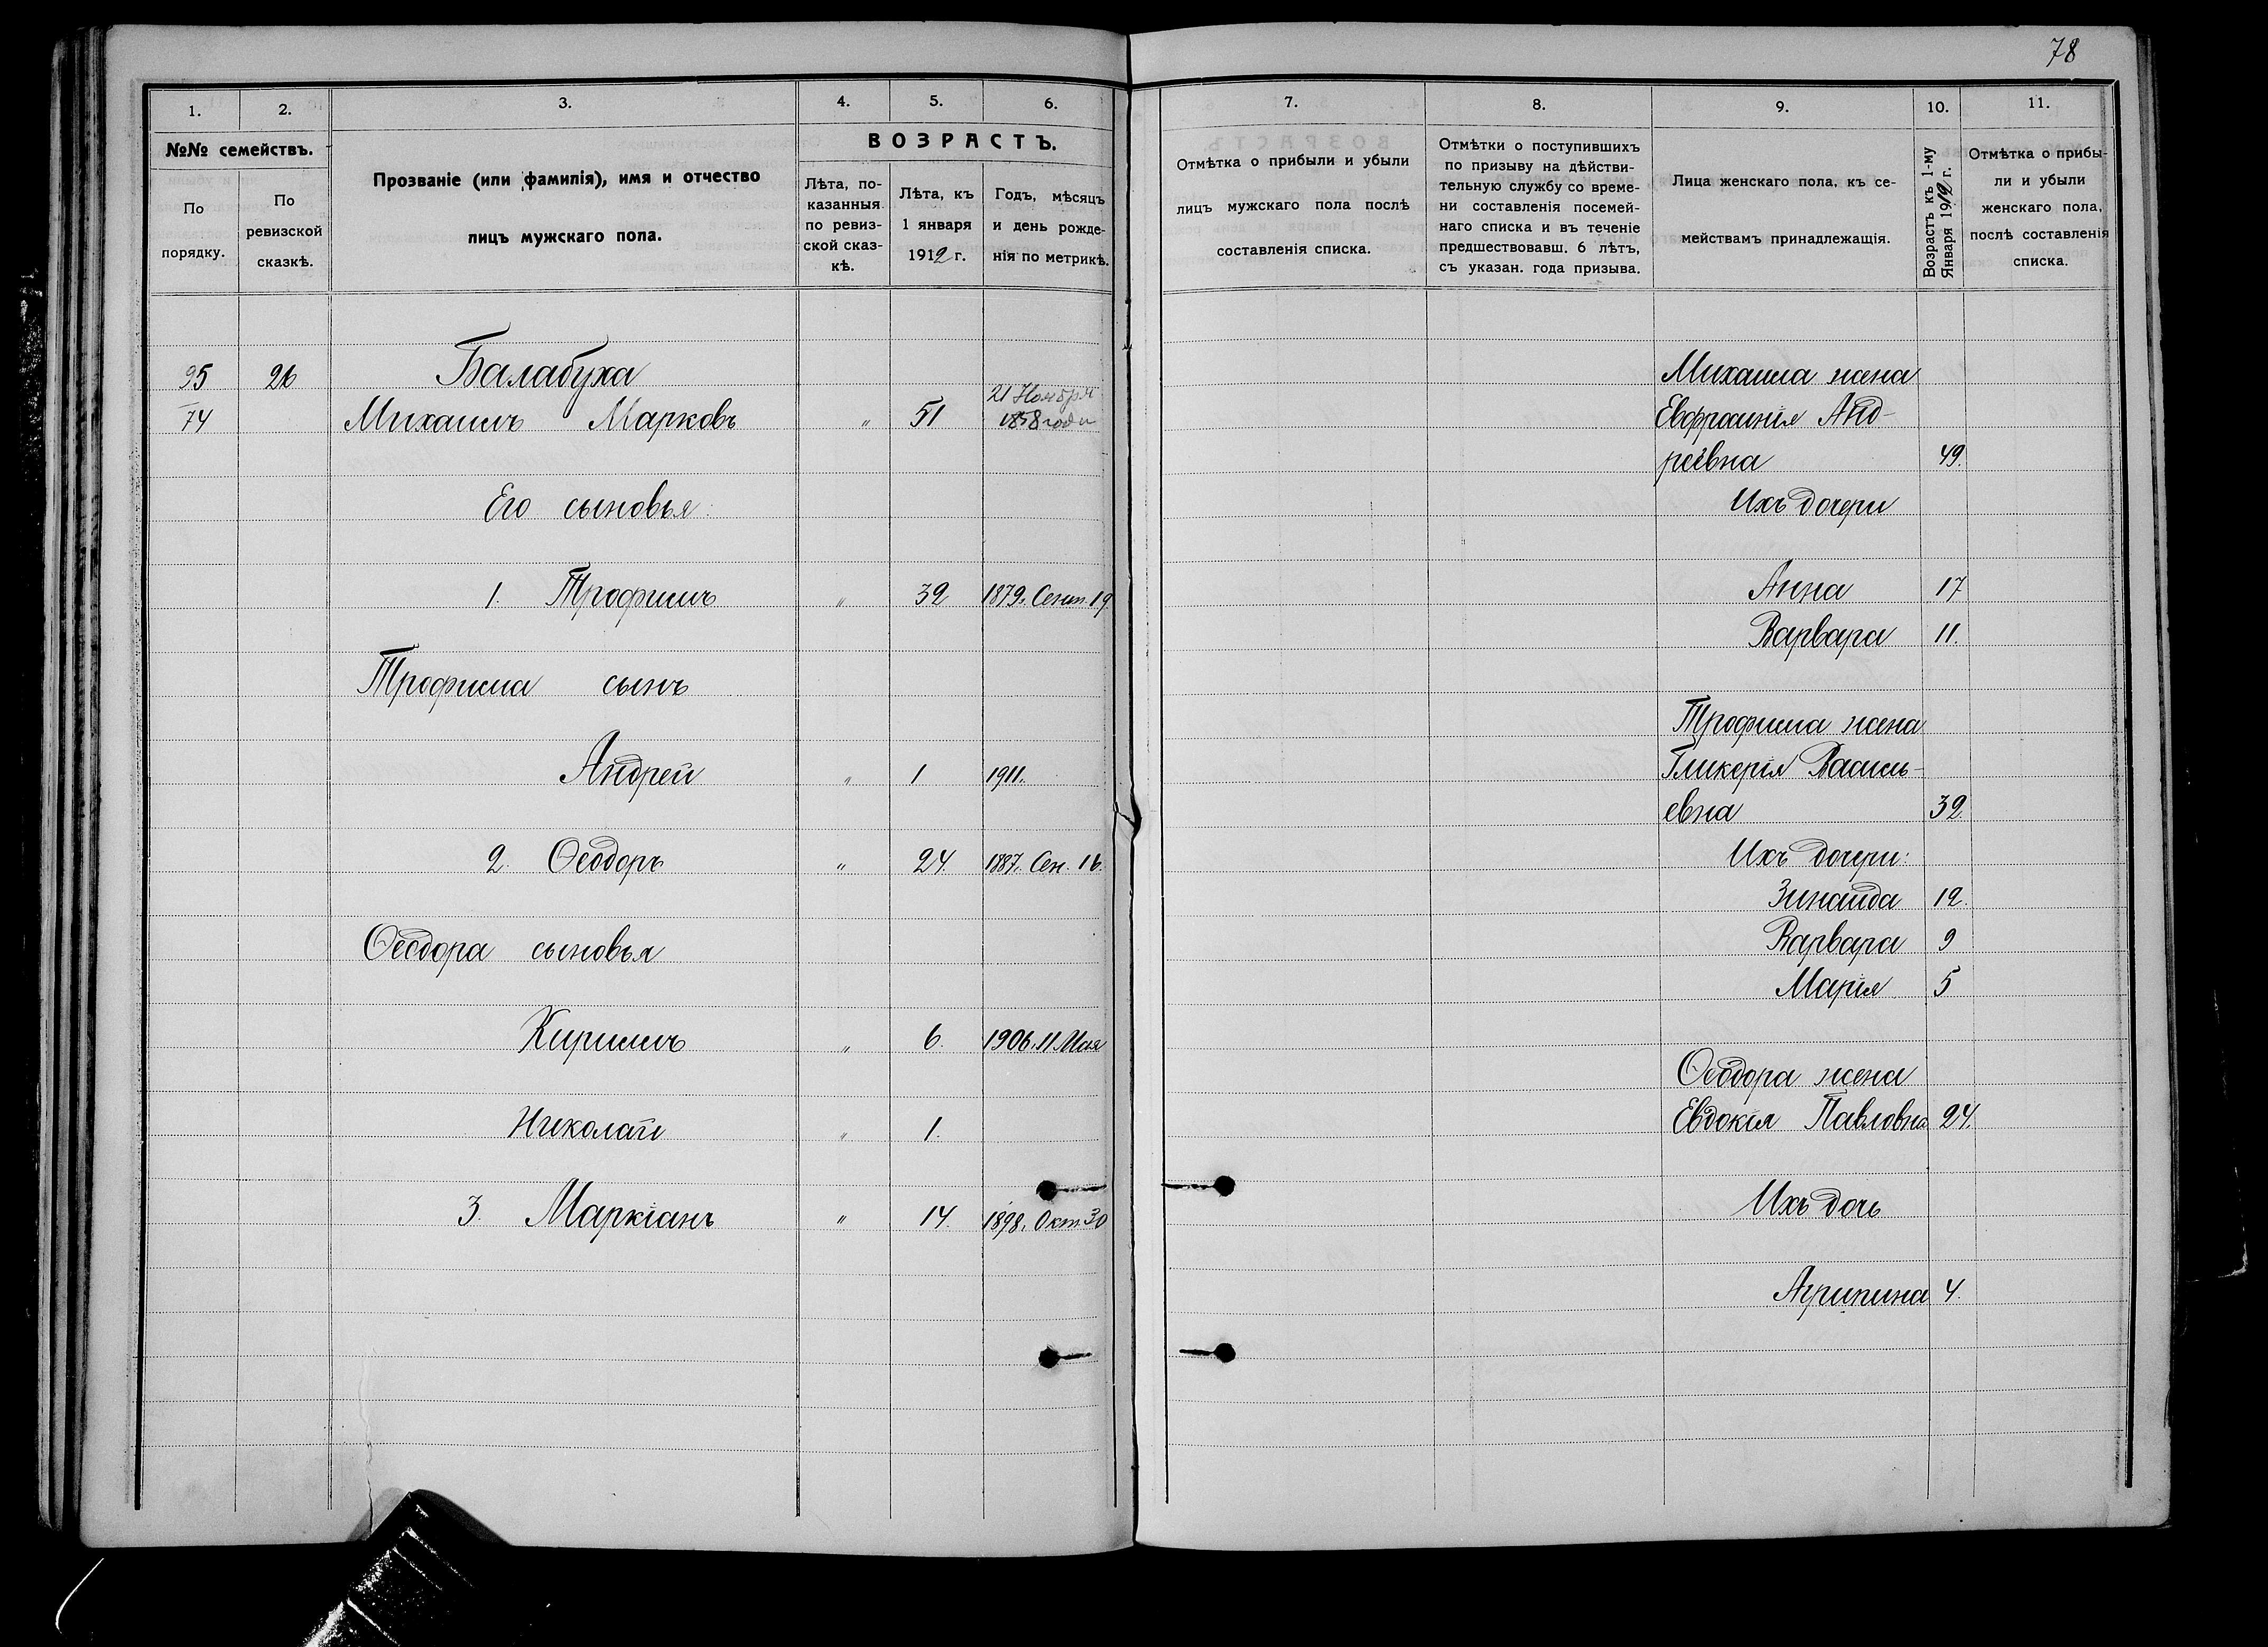 78
1. 2. 3. 4. 5. 6.
№№ семействъ.
По порядку.
По ревизской сказкѣ.
Прозваніе (или фамилія), имя и отчество
лицъ мужскаго пола.
ВОЗРАСТЪ.
Лѣта, по-
казанныя
по ревиз-
ской сказ-
кѣ.
Лѣта, къ
1 января
1912 г.
Годъ, мѣсяцъ
и день рожде-
нія по метрикѣ.
95 26 Балабуха
74 Михаилъ Марковъ " 51 21 Ноября 1858 года
Его сыновья:
1. Трофимъ " 32 1879. Сент. 19
Трофима сынъ
Андрей " 1 1911.
2. Ѳеодоръ " 24. 1887. Сен. 16.
Ѳеодора сыновья
Кириллъ " 6. 1906. 11 Мая
Николай " 1.
3. Маркіанъ " 14 1898. Окт 30
7. 8. 9. 10. 11.
Отмѣтка о прибыли и убыли
лицъ мужскаго пола послѣ
составленія списка.
Отмѣтки о поступившихъ
по призыву на дѣйстви-
тельную службу со време-
ни составленія посемей-
наго списка и въ теченіе
предшествовавш. 6 лѣтъ,
съ указан. года призыва.
Лица женскаго пола, къ се-
мействамъ принадлежащія.
Возрастъ къ 1-му
Января 1912 г.
Отмѣтка о прибы-
ли и убыли
женскаго пола,
послѣ составленія
списка.
Михаила жена
Евфросинія Анд-
реевна 49.
Ихъ дочери
Анна 17
Варвара 11.
Трофима жена
Гликерія Василь-
евна 32.
Ихъ дочери:
Зинаида 12.
Варвара 9
Марія 5
Ѳеодора жена
Евдокія Павловна 24.
Ихъ дочь
Агрипина 4.